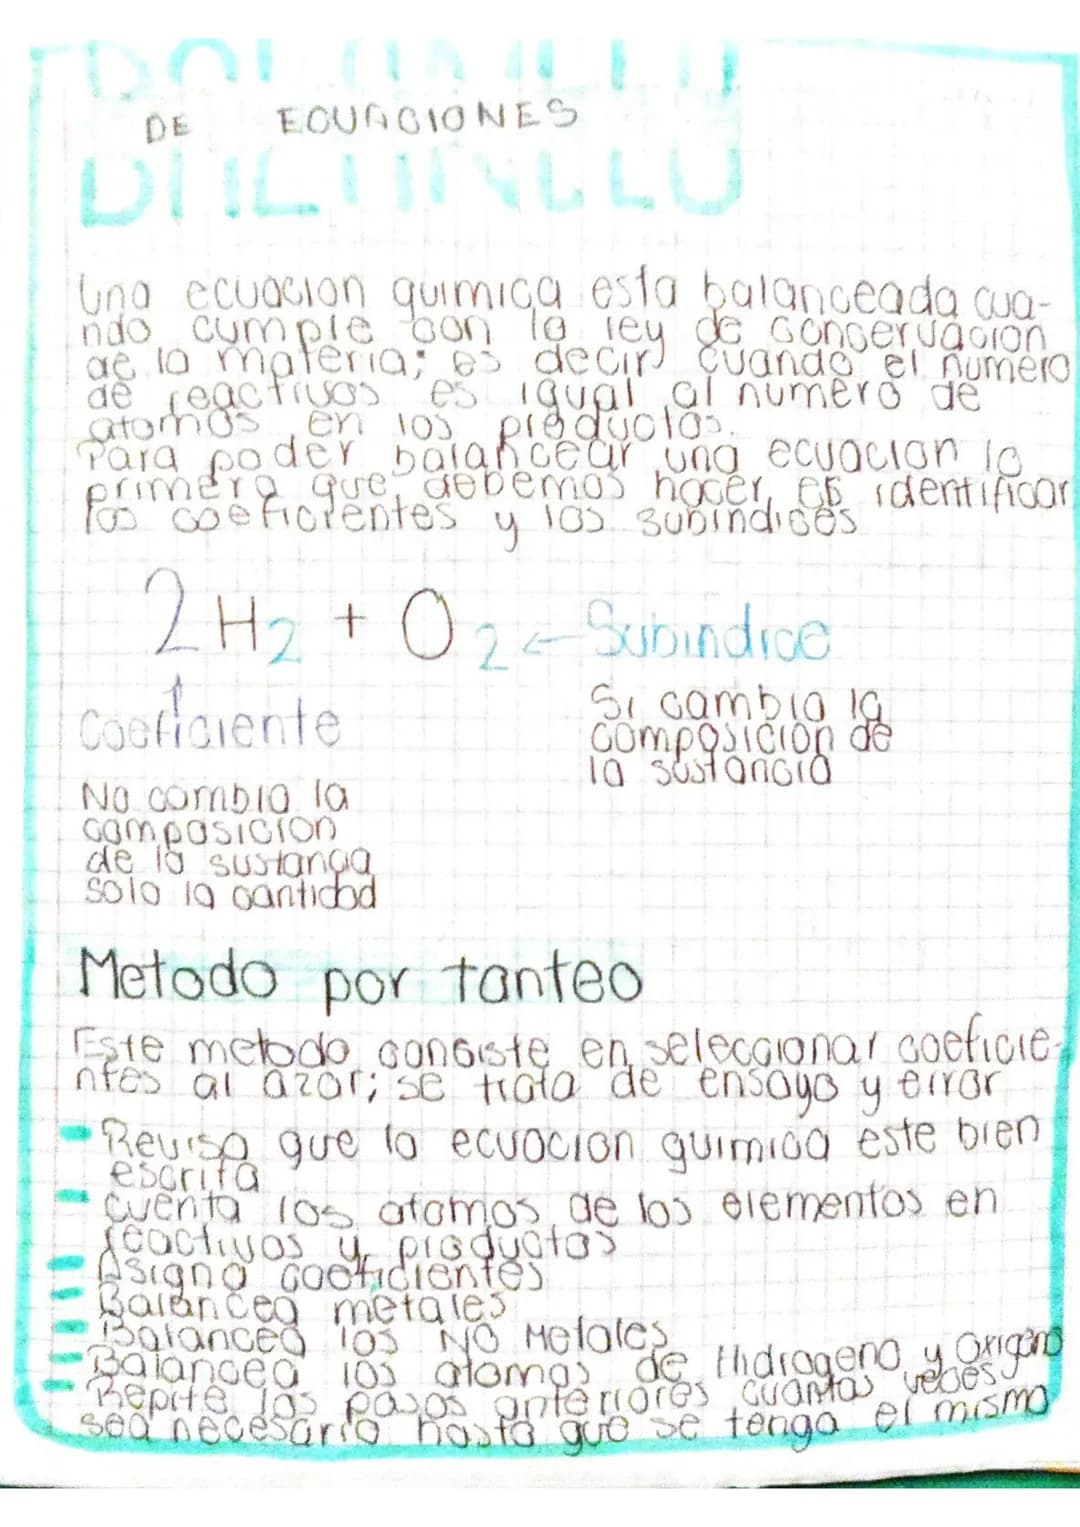 BALANCEO
DE ECUACIONES
Una ecuacion quimica esta balanceada cua-
ndo cumple con la ley de conservacion
de la materia; es decir cuando el numero
de reactivos es igual al numero de
atomos en los productos.
Para poder balancear una ecuacion lo
primero que debemos hacer, es identificar
los coeficientes y los subindices
2H2 + O2 ← Subindice
↑
Coeficiente
Si cambia la
composicion de
la sustancia
No cambia la
composicion
de la sustancia
solo la cantidad
Metodo por tanteo
Este metodo consiste en seleccionar coeficie-
ntes al azar; se trata de ensayo y error
Revisa que la ecuacion quimica este bien
escrita
Cuenta los atomos de los elementos en
reactivos y productos
Asigna coeficientes
Balancea metales
Balancea los NO Metales
Balancea los atomos de Hidrogeno y Oxigeno
Repite los pasos anteriores cuantas veces
sea necesario hasta que se tenga el mismo